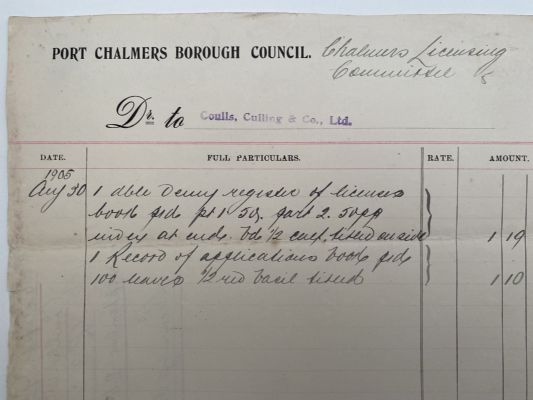 PORT CHALMERS BOROUGH COUNCIL. Chalmers Licensing
Committee
Dr. to Coulls, Culling & Co., Ltd.
DATE. FULL PARTICULARS. RATE. AMOUNT.
1905
Aug 30 1 dble Demy register of licenses
book ptd pt 1 50, part 2. 50pp
index at ends. bd 1/2 calf, titled on side 1 19
1 Record of applications book ptd
100 leaves 1/2 red basil titled 1 10